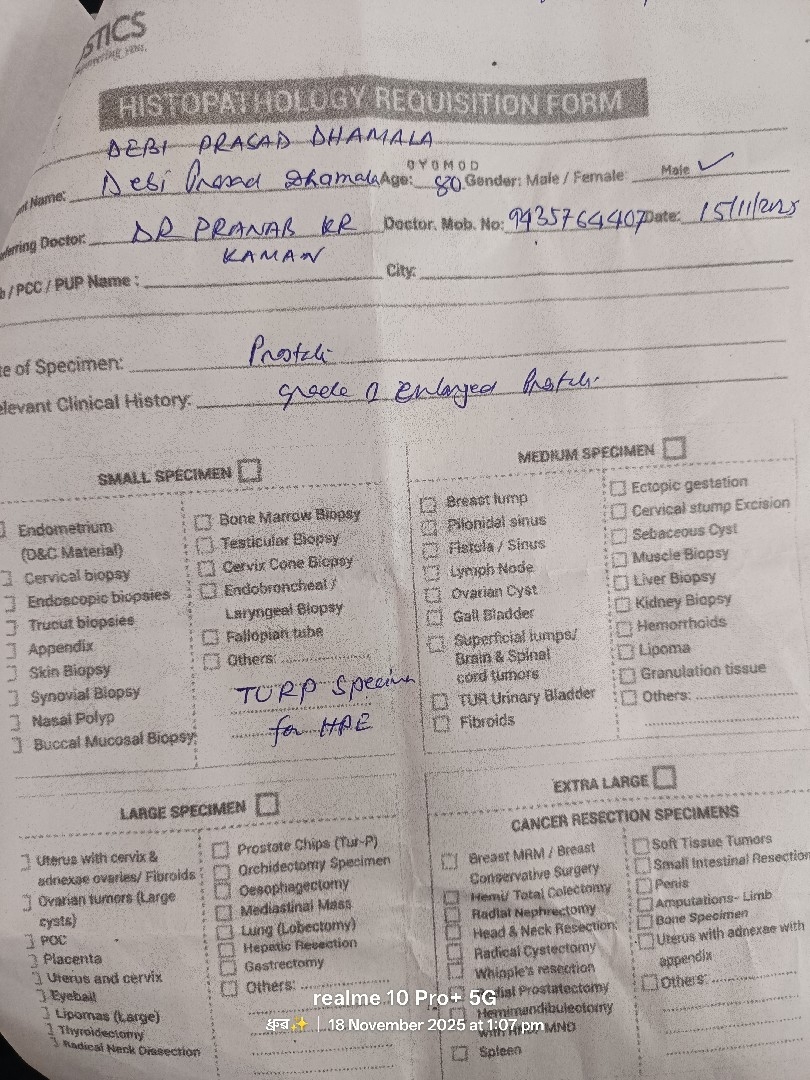 STICS
HISTOPATHOLOGY REQUISITION FORM
DEBI PRASAD DHAMALA
Name: Debi Prasad Dhamala Age: 80 0Y0M0D Gender: Male / Female: Male ✓
Doctor: DR PRANAB KR Doctor. Mob. No: 9435764407 Date: 15/11/2025
KAMAN
/ PCC / PUP Name : City:
of Specimen:
Clinical History: Enlarged
SMALL SPECIMEN
Endometrium
(D&C Material)
Cervical biopsy
Endoscopic biopsies
Trucut biopsies
Appendix
Skin Biopsy
Synovial Biopsy
Nasal Polyp
Buccal Mucosal Biopsy
Bone Marrow Biopsy
Testicular Biopsy
Cervix Cone Biopsy
Endobroncheal /
Laryngeal Biopsy
Fallopian tube
Others:
TURP Specimen
for HPE
MEDIUM SPECIMEN
Breast lump
Pilonidal sinus
Fistula / Sinus
Lymph Node
Ovarian Cyst
Gall Bladder
Superficial lumps/
Brain & Spinal
cord tumors
TUR Urinary Bladder
Fibroids
Ectopic gestation
Cervical stump Excision
Sebaceous Cyst
Muscle Biopsy
Liver Biopsy
Kidney Biopsy
Hemorrhoids
Lipoma
Granulation tissue
Others:
LARGE SPECIMEN
Uterus with cervix &
adnexae ovaries/ Fibroids
Ovarian tumors (Large
cysts)
POC
Placenta
Uterus and cervix
Eyeball
Lipomas (Large)
Thyroidectomy
Radical Neck Dissection
Prostate Chips (Tur-P)
Orchidectomy Specimen
Oesophagectomy
Mediastinal Mass
Lung (Lobectomy)
Hepatic Resection
Gastrectomy
Others:
EXTRA LARGE
CANCER RESECTION SPECIMENS
Breast MRM / Breast
Conservative Surgery
Hemi/ Total Colectomy
Radial Nephrectomy
Head & Neck Resection
Radical Cystectomy
Whipple's resection
Prostatectomy
Hemimandibulectomy
with MND
Spleen
Soft Tissue Tumors
Small Intestinal Resection
Penis
Amputations- Limb
Bone Specimen
Uterus with adnexae with
appendix
Others:
realme 10 Pro+ 5G
ध्रुव✨ | 18 November 2025 at 1:07 pm